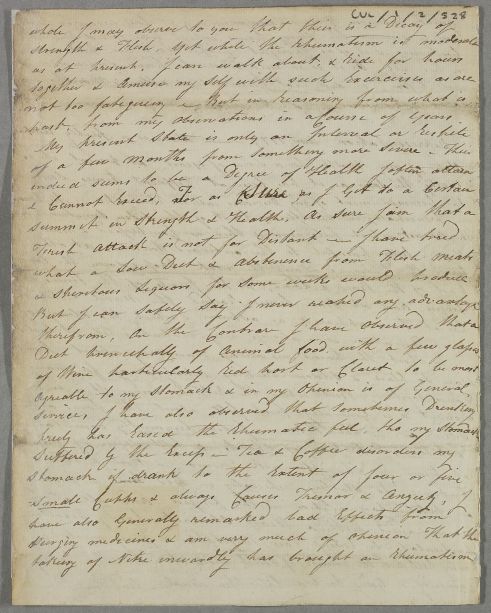 CUL/1/2/528
whole I may observe to you that there is a Decay of
strength & Flesh. Yet while the Rheumatism is moderate
as at present, I can walk about, & Ride for hours
together & amuse my self with such Excercises as are
not too fatigueing – But in reasoning from what is
past, from my observations in a Course of Years
My present State is only an Interval or respite
of a few Months from something more Severe – There
indeed seems to be a Degree of Health I often attain
& Cannot Exceed, For as Sure as I Get to a Certain
Summit in Strength & Health, As sure I am that a
Fresh attack is not far Distant – I have tried
what a Low Diet & abstinence from Flesh meats
& Spirituous Liquors for some weeks would produce
But I can safely say I never reaked any advantage
therefrom, On the Contrary I have observed that a
Diet principally of animal food with a few glasses
of Wine particularly Red port or Claret to be most
agreable to my Stomach & in my Opinion is of General
Service, I have also observed that sometimes Drinking
freely has Eased the Rheumatic feel, tho my Stomach
Suffered by the Excess – Tea & Coffee disorders my
Stomach if drank to the Extent of four or five
Small Cupps & always Causes Tremor & Angiety, I
have also Generally remarked bad Effects from
Purging medicines & am very much of opinion That the
taking of Nitre inwardly has brought on Rheumatism